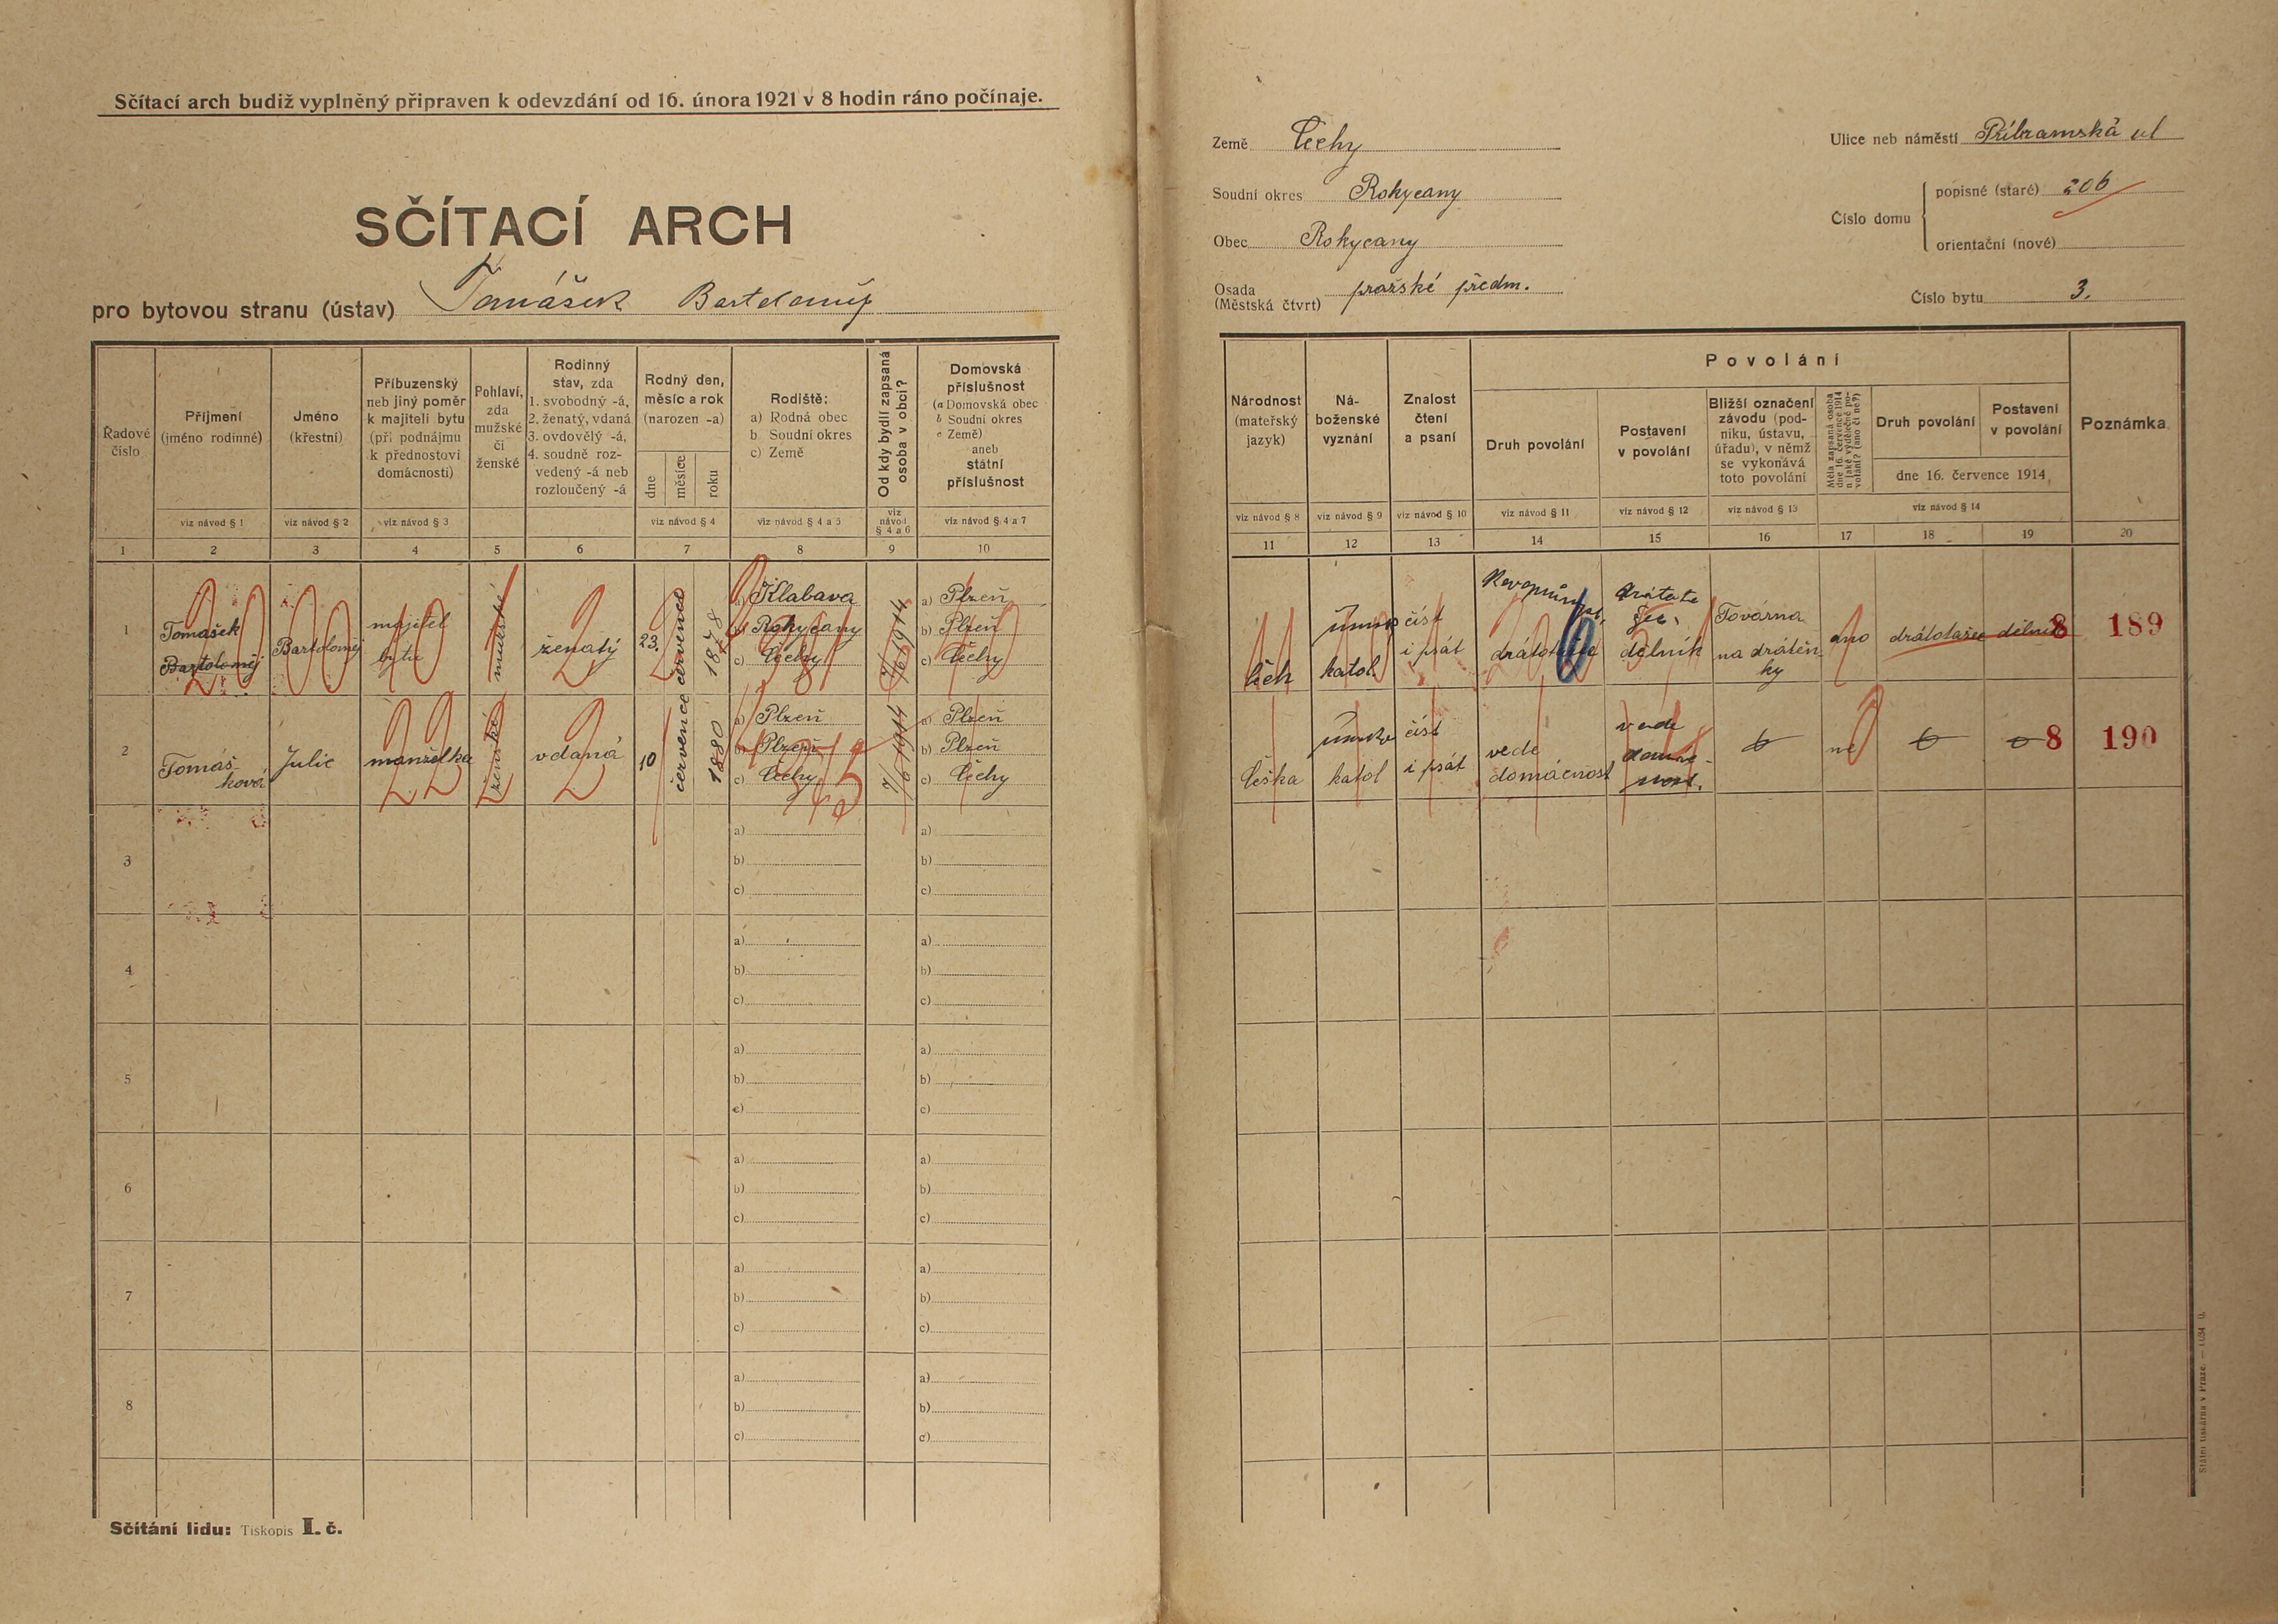 Sčítací arch budiž vyplněný připraven k odevzdání od 16. února 1921 v 8 hodin ráno počínaje.
SČÍTACÍ ARCH
pro bytovou stranu (ústav) Tomášek Bartoloměj
Země Čechy
Soudní okres Rokycany
Obec Rokycany
Osada (Městská čtvrt) pražské předm.
Ulice neb náměstí Příbramská ul
Číslo domu
popisné (staré) 206
orientační (nové)
Číslo bytu 3.
Řadové číslo
Příjmení (jméno rodinné)
Jméno (křestní)
Příbuzenský neb jiný poměr k majiteli bytu (při podnájmu k přednostovi domácnosti)
Pohlaví, zda mužské či ženské
Rodinný stav, zda 1. svobodný -á, 2. ženatý, vdaná 3. ovdovělý -á, 4. soudně rozvedený -á neb rozloučený -á
Rodný den, měsíc a rok (narozen -a)
dne
měsíce
roku
Rodiště: a) Rodná obec b Soudní okres c) Země
Od kdy bydlí zapsaná osoba v obci?
Domovská příslušnost (a Domovská obec b Soudní okres c Země) aneb státní příslušnost
viz návod § 1
viz návod § 2
viz návod § 3
viz návod § 4
viz návod § 4 a 5
viz návod § 4 a 6
viz návod § 4 a 7
1 2 3 4 5 6 7 8 9 10
Národnost (mateřský jazyk)
Náboženské vyznání
Znalost čtení a psaní
Povolání
Druh povolání
Postavení v povolání
Bližší označení závodu (podniku, ústavu, úřadu), v němž se vykonává toto povolání
Měla zapsaná osoba dne 16. července 1914 n jaké výdělečné povolání? (ano či ne?)
Druh povolání
Postavení v povolání
dne 16. července 1914
Poznámka
viz návod § 8
viz návod § 9
viz návod § 10
viz návod § 11
viz návod § 12
viz návod § 13
viz návod § 14
11 12 13 14 15 16 17 18 19 20
1
Tomašek
Bartoloměj
Bartoloměj
majitel
bytu
mužské
ženatý
23.
července
1878
a) Klabava
b) Rokycany
c) Čechy
a) Plzeň
b) Plzeň
c) Čechy
Čech
katol
číst
i psát
dělník
Továrna
na drátěn-
ky
ano
drátotažec
dělník
8
189
2
Tomáš-
ková
Julie
manželka
ženské
vdaná
10
července
1880
a) Plzeň
b) Plzeň
c) Čechy
a) Plzeň
b) Plzeň
c) Čechy
Češka
katol
číst
i psát
vede
domácnost
vede
ne
8
190
3
a)
b)
c)
a)
b)
c)
4
a)
b)
c)
a)
b)
c)
5
a)
b)
c)
a)
b)
c)
6
a)
b)
c)
a)
b)
c)
7
a)
b)
c)
a)
b)
c)
8
a)
b)
c)
a)
b)
c)
Sčítání lidu: Tiskopis I. č.
Státní tiskárna v Praze.